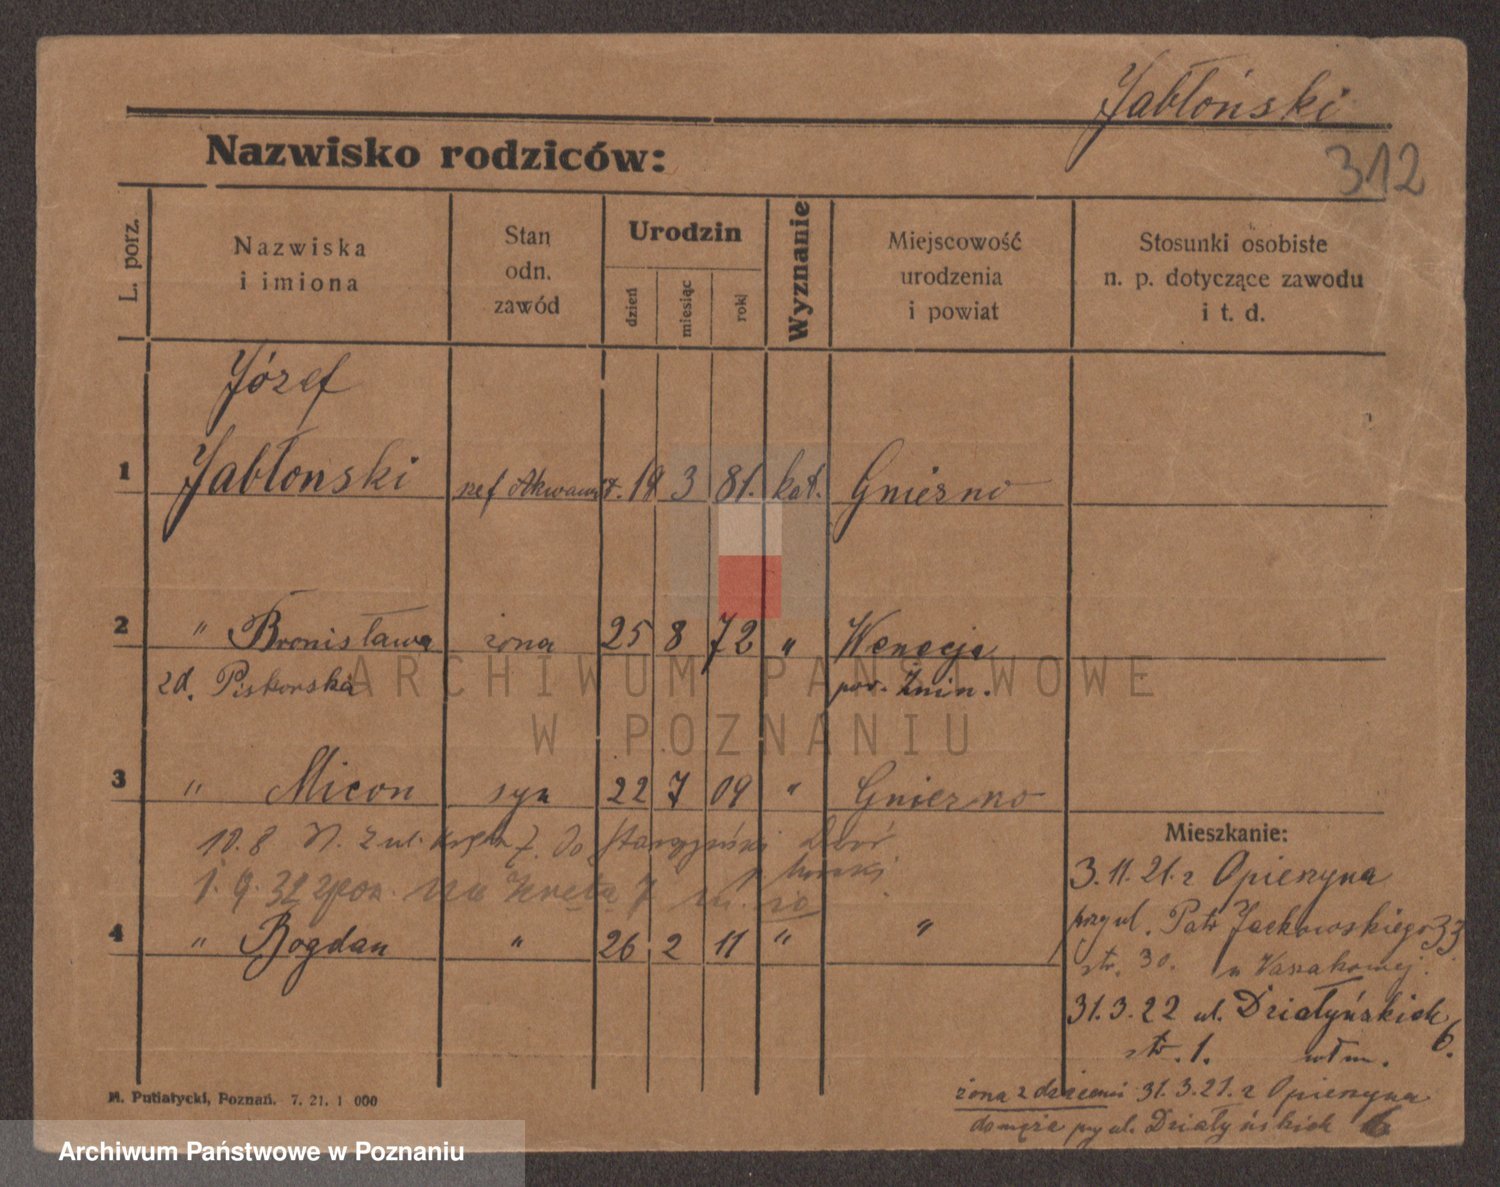 Jabłoński
312
Nazwisko rodziców:
L. porz.
Nazwiska
i imiona
Stan
odn.
zawód
Urodzin
dzień
miesiąc
rok
Wyznanie
Miejscowość
urodzenia
i powiat
Stosunki osobiste
n. p. dotyczące zawodu
i t. d.
Józef
1 Jabłoński szef 3 81. kat. Gniezno
2 " Bronisława żona 25 8 72 " Wenecja
zd. Piskorska pow. Żnin.
ARCHIWUM PAŃSTWOWE
W POZNANIU
3 " syn 22 7 09 " Gniezno
10.8
1.9.32
4 " Bogdan " 26 2 11 " "
Mieszkanie:
3.11.21. z
przy ul. Jackowskiego 33
str. 30.
31.3.22 ul. Działyńskich 6.
str. 1.
żona z dziećmi 31.3.21. z
do męża przy ul. Działyńskich 6
M. Putiatycki, Poznań. 7. 21. 1 000
Archiwum Państwowe w Poznaniu